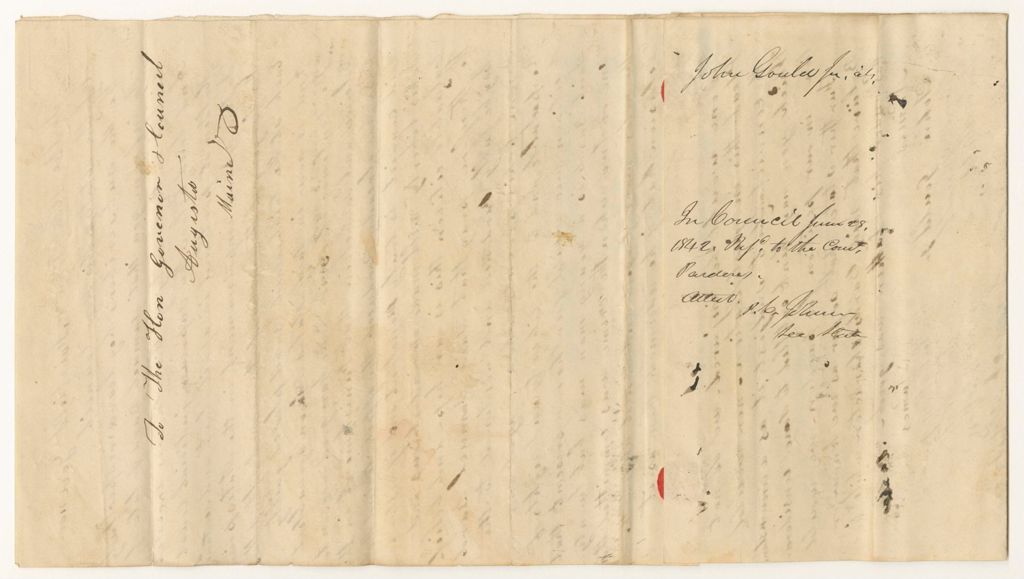 To The Hon Govenor & Council
Augusta
Maine
John Gould Jr. al.
In Council June 28,
1842. Refd. to the Comt.
Pardons.
Attest.
P. C. Johnson
Sec. State